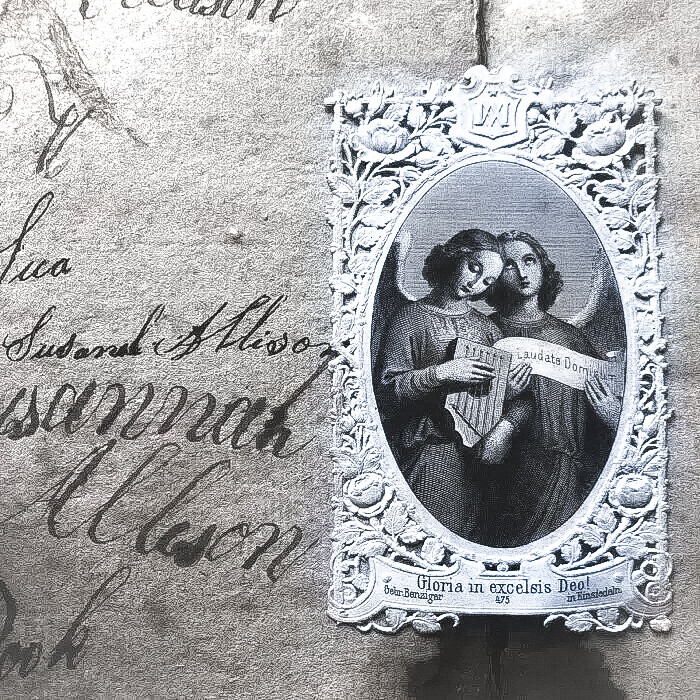 Allison
Sica
Susanah Allison
Susannah
Allison
Book
Laudate Domi
Gloria in excelsis Deo!
Gebr. Benziger 475 in Einsiedeln